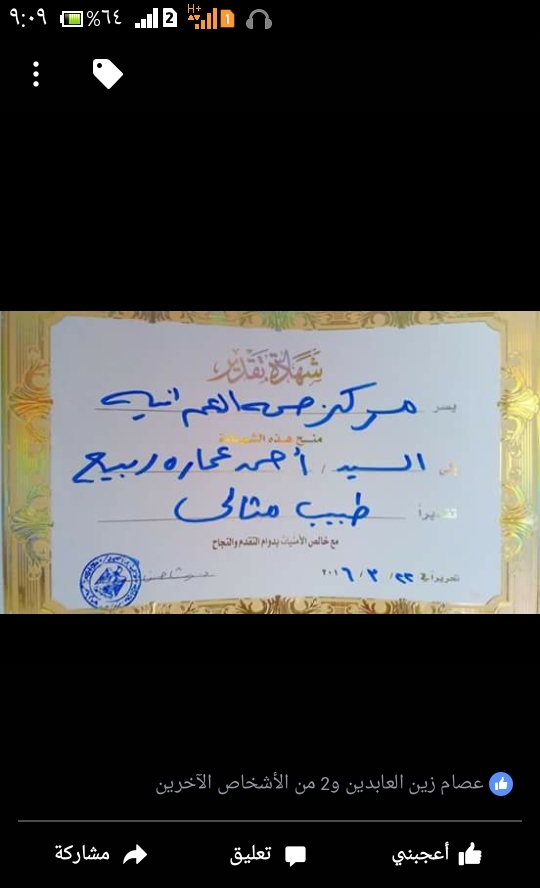 ٩:٠٩ %٦٤ 2 H+ 1
شهادة تقدير
يسر مركز صحه العمرانيه
منح هذه الشهادة
إلى السيد / أحمد عماره ربيع
تقديراً طبيب مثالى
مع خالص الأمنيات بدوام التقدم والنجاح
تحريراً في ٢٣ / ٣ / ٢٠١٦
عصام زين العابدين و2 من الأشخاص الآخرين
أعجبني تعليق مشاركة